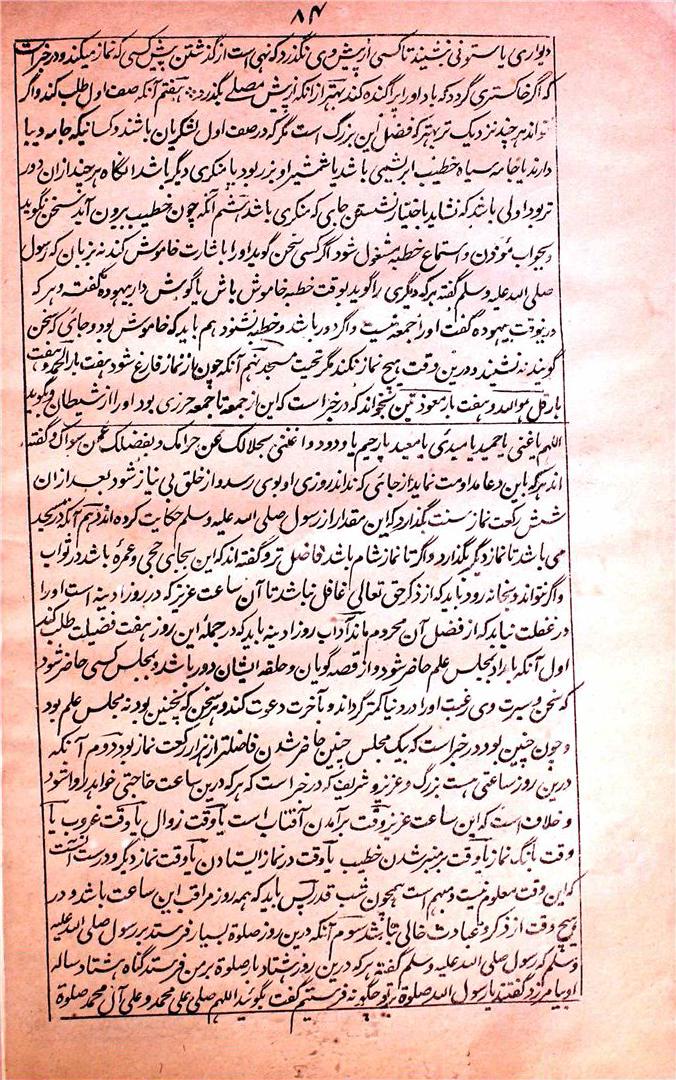 ۸۴
دیواری یا ستونی نشیند تا کسی از پیش وی نگذرد که نهی است از گذشتن پیش کسی که نماز میکند و در خبر است
که اگر خاکستری گردد که باد او را پراگنده کند بهتر از انکه از پیش مصلے بگذرد هفتم آنکه صف اول طلب کند و اگر
نتواند هر چند نزدیک تر بهتر که فضل این بزرگ است مگر که در صف اول لشکریان باشند و کسانیکه جامه دیبا
دارند یا جامه سیاه خطیب ابریشمی باشد یا شمشیر او بزر بود یا منکری دیگر باشد انگاه هر چند ازان دور
تر بود اولی باشد که نشاید باختیار نشستن جایی که منکری باشد هشتم آنکه چون خطیب بیرون آید سخن نگوید
و بجواب مؤذن و استماع خطبه مشغول شود اگر کسی سخن گوید او را باشارت خاموش کند نه بزبان که رسول
صلی الله علیه وسلم گفته هر که دیگری را گوید بوقت خطبه خاموش باش یا گوش دار بیهوده گفت و هر که
درینوقت بیهوده گفت او را جمعه نیست و اگر دور باشد و خطبه نشنود هم باید که خاموش بود و جای که سخن
گویند نه نشیند و درین وقت هیچ نماز نکند مگر تحیت مسجد نهم آنکه چون از نماز فارغ شود هفت بار الحمد و هفت
بار قل هو الله و هفت بار معوذتین بخواند که در خبر است که این از جمعه تا جمعه حرزی بود او را از شیطان و بگوید
اللهم یا غنی یا حمید یا مبدئ یا معید یا رحیم یا ودود اغننی بحلالک عن حرامک و بفضلک عمن سواک و گفته
اند هر که باین دعا مداومت نماید از جای که نداند روزی او بوی رسد و از خلق بی نیاز شود بعد ازان
شش رکعت نماز سنت گذارد که این مقدار از رسول صلی الله علیه وسلم حکایت کرده اند دهم آنکه در مسجد
می باشد تا نماز دیگر بگذارد و اگر تا نماز شام باشد فاضل تر و گفته اند که این بجای حجی و عمرهٔ باشد در ثواب
و اگر نتواند و بخانه رود باید که از ذکر حق تعالی غافل نباشد تا آن ساعت عزیز که در روز ادینه است او را
در غفلت نیابد که از فضل آن محروم ماند آداب روز ادینه باید که در جملهٔ این روز هفت فضیلت طلب کند
اول آنکه بامداد بمجلس علم حاضر شود و از قصه گویان و حلقه ایشان دور باشد و بمجلس کسی حاضر شود
که سخن و سیرت وی رغبت او را در دنیا کمتر گرداند و بآخرت دعوت کند و هر سخن که نه چنین بود نه مجلس علم بود
و چون چنین بود در خبر است که بیک مجلس چنین حاضر شدن فاضلتر از هزار رکعت نماز بود دوم آنکه
درین روز ساعتی هست بزرگ و عزیز و شریف که در خبر است که هر که درین ساعت حاجتی خواهد روا شود
و خلاف است که این ساعت عزیز وقت برآمدن آفتاب است یا وقت زوال یا وقت غروب یا
وقت بانگ نماز یا وقت بر منبر شدن خطیب یا وقت در نماز ایستادن یا وقت نماز دیگر و درست آنست
که این وقت معلوم نیست و مبهم است همچون شب قدر پس باید که همه روز مراقب این ساعت باشد و در
هیچ وقت از ذکر و عبادت خالی نباشد سوم آنکه درین روز صلوة بسیار فرستد بر رسول صلی الله علیه
وسلم که رسول صلی الله علیه وسلم گفته هر که درین روز هشتاد بار صلوة بر من فرستد گناه هشتاد ساله
او بیامرزد گفتند یا رسول الله صلوة بر تو چگونه فرستیم گفت بگوئید اللهم صلی علی محمد و علی آل محمد صلوة